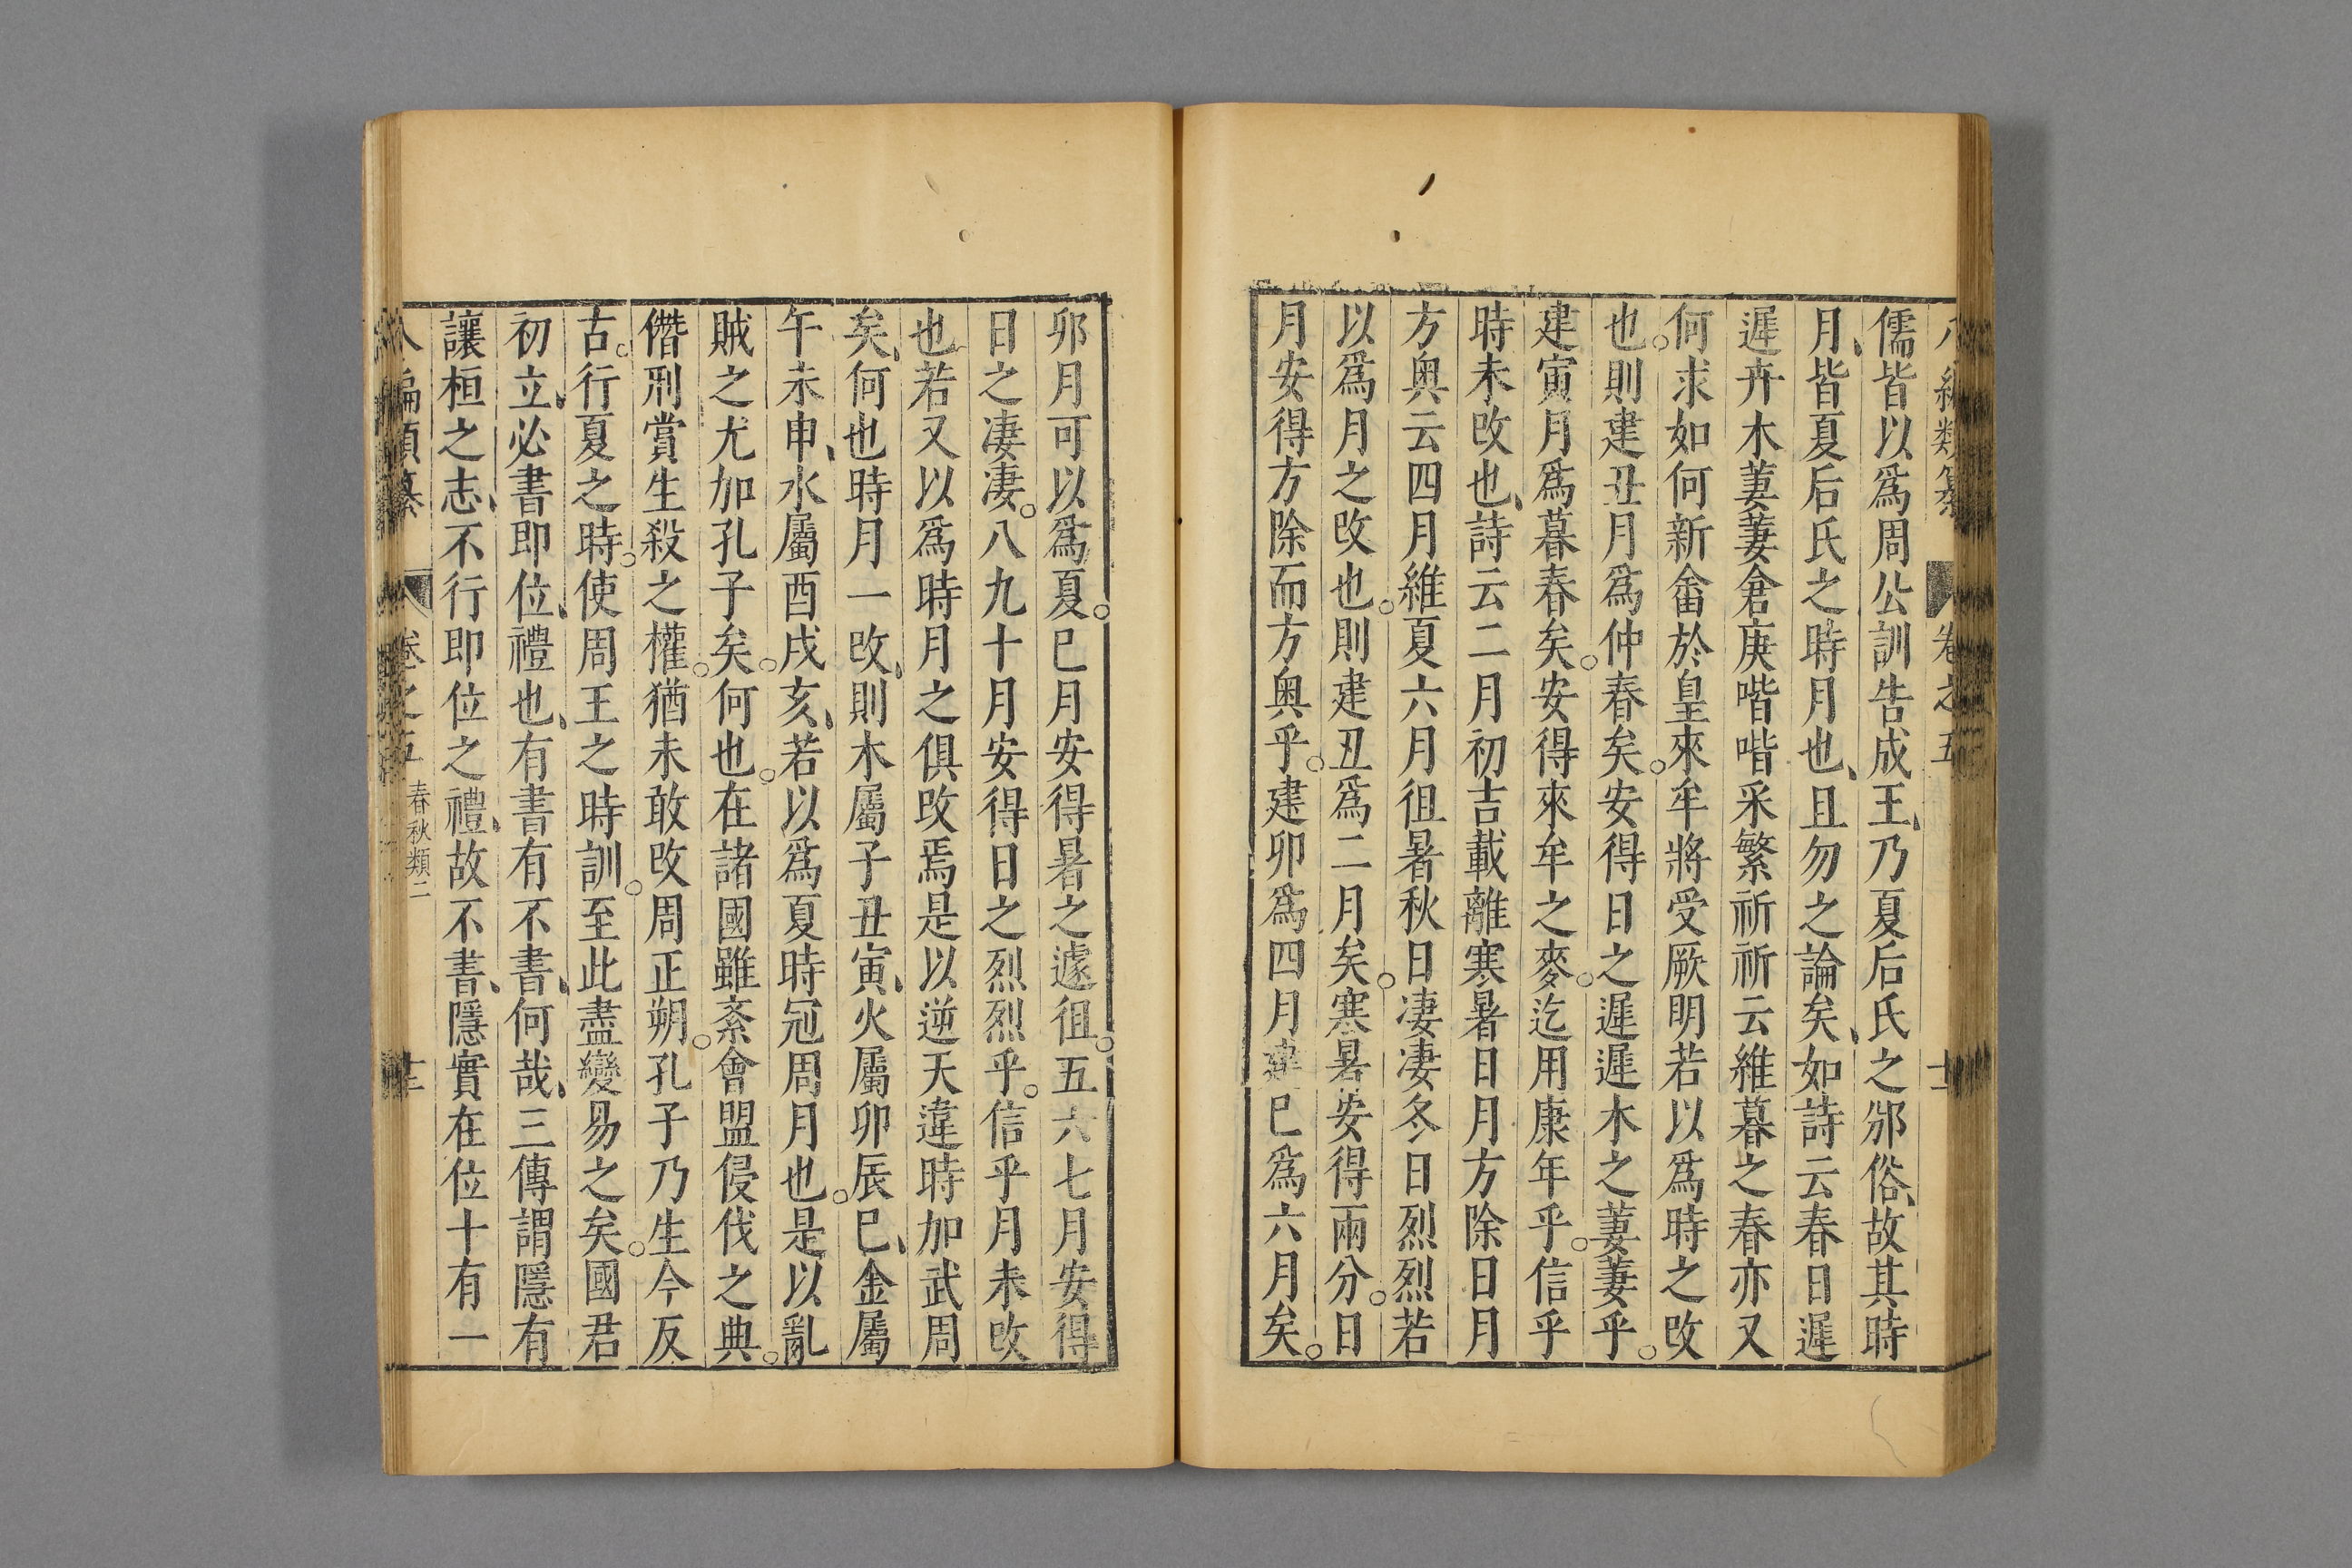 八編類纂 卷之五 十
儒皆以爲周公訓告成王乃夏后氏之邠俗故其時
月皆夏后氏之時月也且勿之論矣如詩云春日遲
遲卉木萋萋倉庚喈喈采蘩祈祈云維暮之春亦又
何求如何新畬於皇來牟將受厥明若以爲時之改
也則建丑月爲仲春矣安得日之遲遲木之萋萋乎
建寅月爲暮春矣安得來牟之麥迄用康年乎信乎
時未改也詩云二月初吉載離寒暑日月方除日月
方奧云四月維夏六月徂暑秋日凄凄冬日烈烈若
以爲月之改也則建丑爲二月矣寒暑安得兩分日
月安得方除而方奧乎建卯爲四月建巳爲六月矣
卯月可以爲夏巳月安得暑之遽徂五六七月安得
日之凄凄八九十月安得日之烈烈乎信乎月未改
也若又以爲時月之俱改焉是以逆天違時加武周
矣何也時月一改則木屬子丑寅火屬卯辰巳金屬
午未申水屬酉戌亥若以爲夏時冠周月也是以亂
賊之尤加孔子矣何也在諸國雖紊會盟侵伐之典
僭刑賞生殺之權猶未敢改周正朔孔子乃生今反
古行夏之時使周王之時訓至此盡變易之矣國君
初立必書即位禮也有書有不書何哉三傳謂隱有
讓桓之志不行即位之禮故不書隱實在位十有一
八編類纂 卷之五 春秋類二